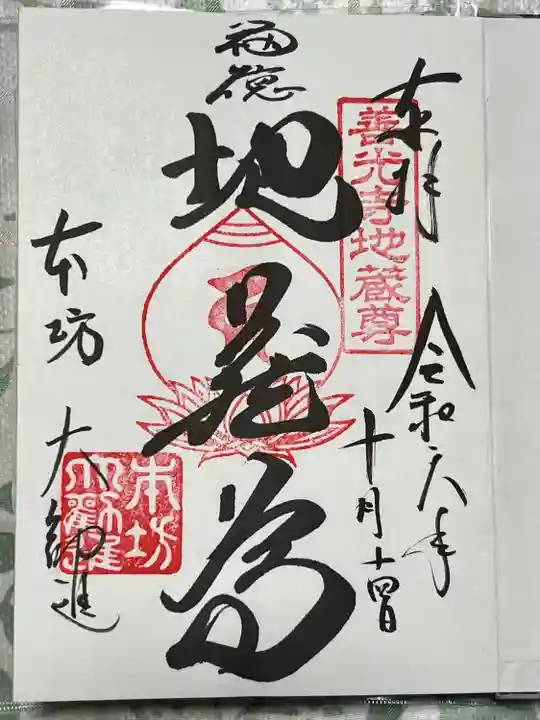 奉拝
善光寺地蔵尊
令和六年
十月十四日
福徳
地蔵尊
本坊 大勧進
本坊
大勧進